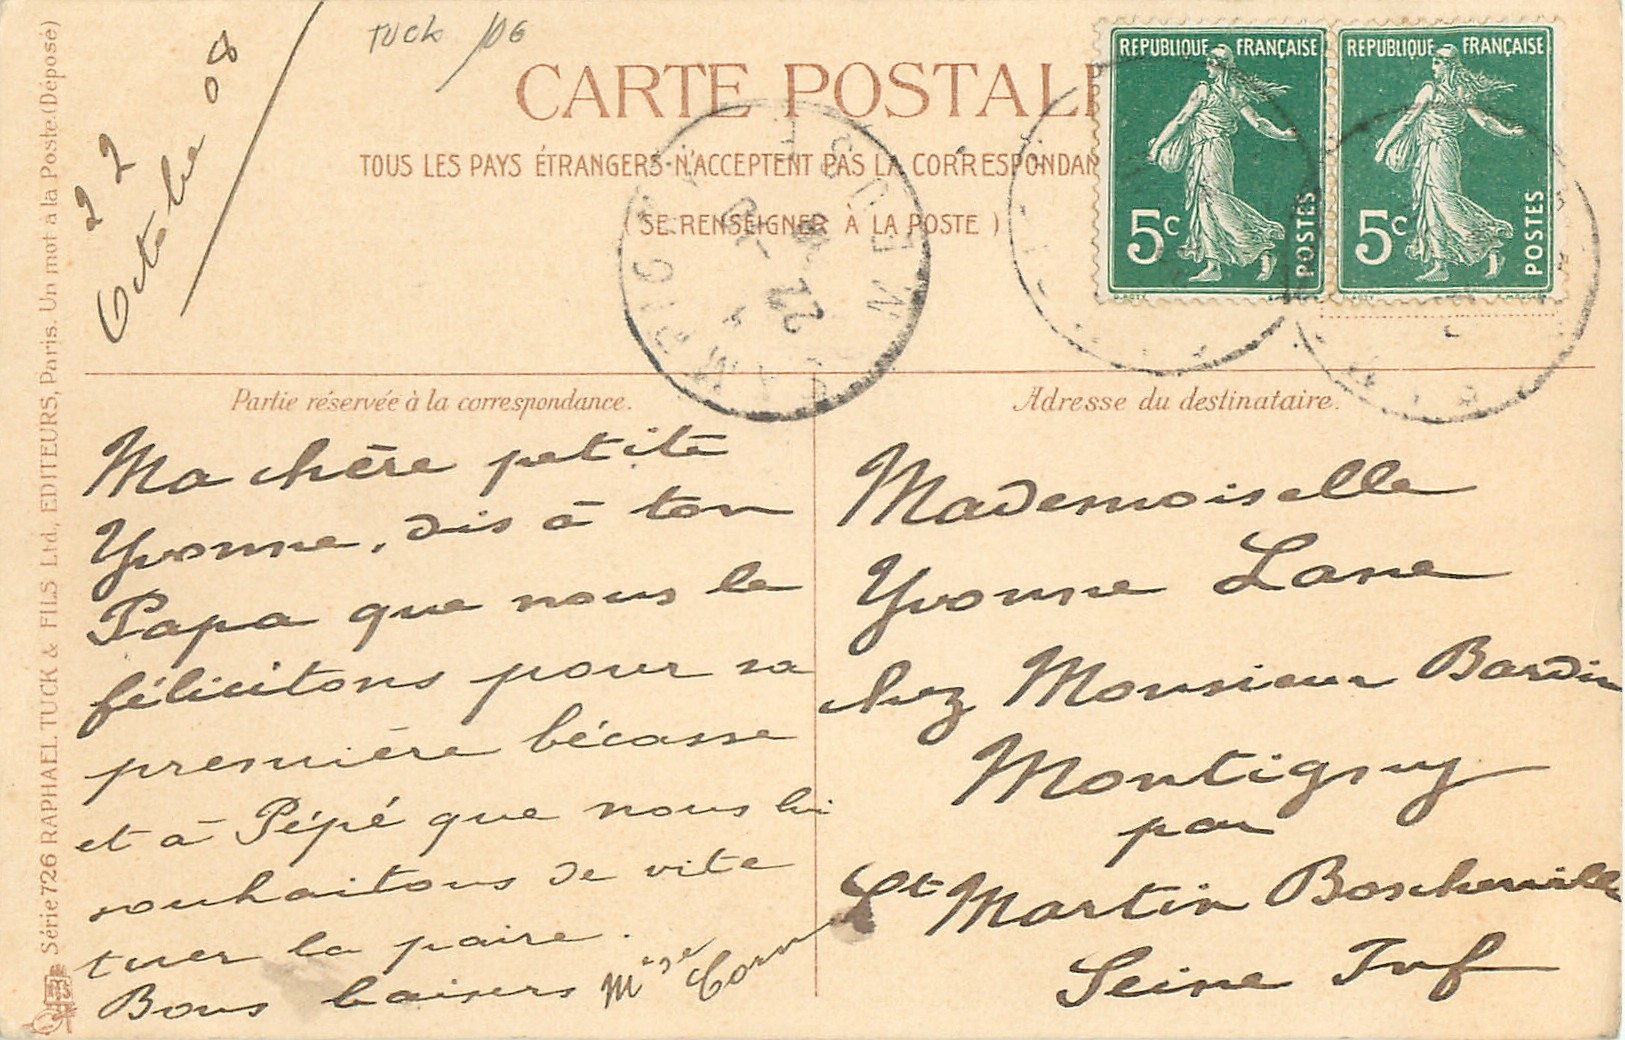 TUCK 106
22
Octobre 08
CARTE POSTALE
TOUS LES PAYS ÉTRANGERS N'ACCEPTENT PAS LA CORRESPONDAN
(SE RENSEIGNER A LA POSTE)
REPUBLIQUE FRANÇAISE
5c
POSTES
REPUBLIQUE FRANÇAISE
5c
POSTES
22
Série 726 RAPHAEL TUCK & FILS Ltd., EDITEURS, Paris. Un mot à la Poste (Déposé)
Partie réservée à la correspondance.
Ma chère petite
Yvonne, dis à ton
Papa que nous le
félicitons pour sa
première bécasse
et à Pépé que nous lui
souhaitons de vite
tuer la paire.
Bons baisers
Adresse du destinataire.
Mademoiselle
Yvonne Lane
chez Monsieur Bardin
Montigny
par
St Martin Boscherville
Seine Inf